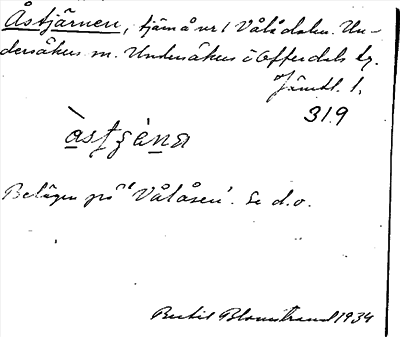 Åstjärnen, tjärn å nr 1 Vålådalen. Un-
dersåkers sn. Undersåkers o Offerdals tg.
Jämtl. l.
319
Belägen på "Vålåsen". Se d.o.
Bertil Blomstrand 1934